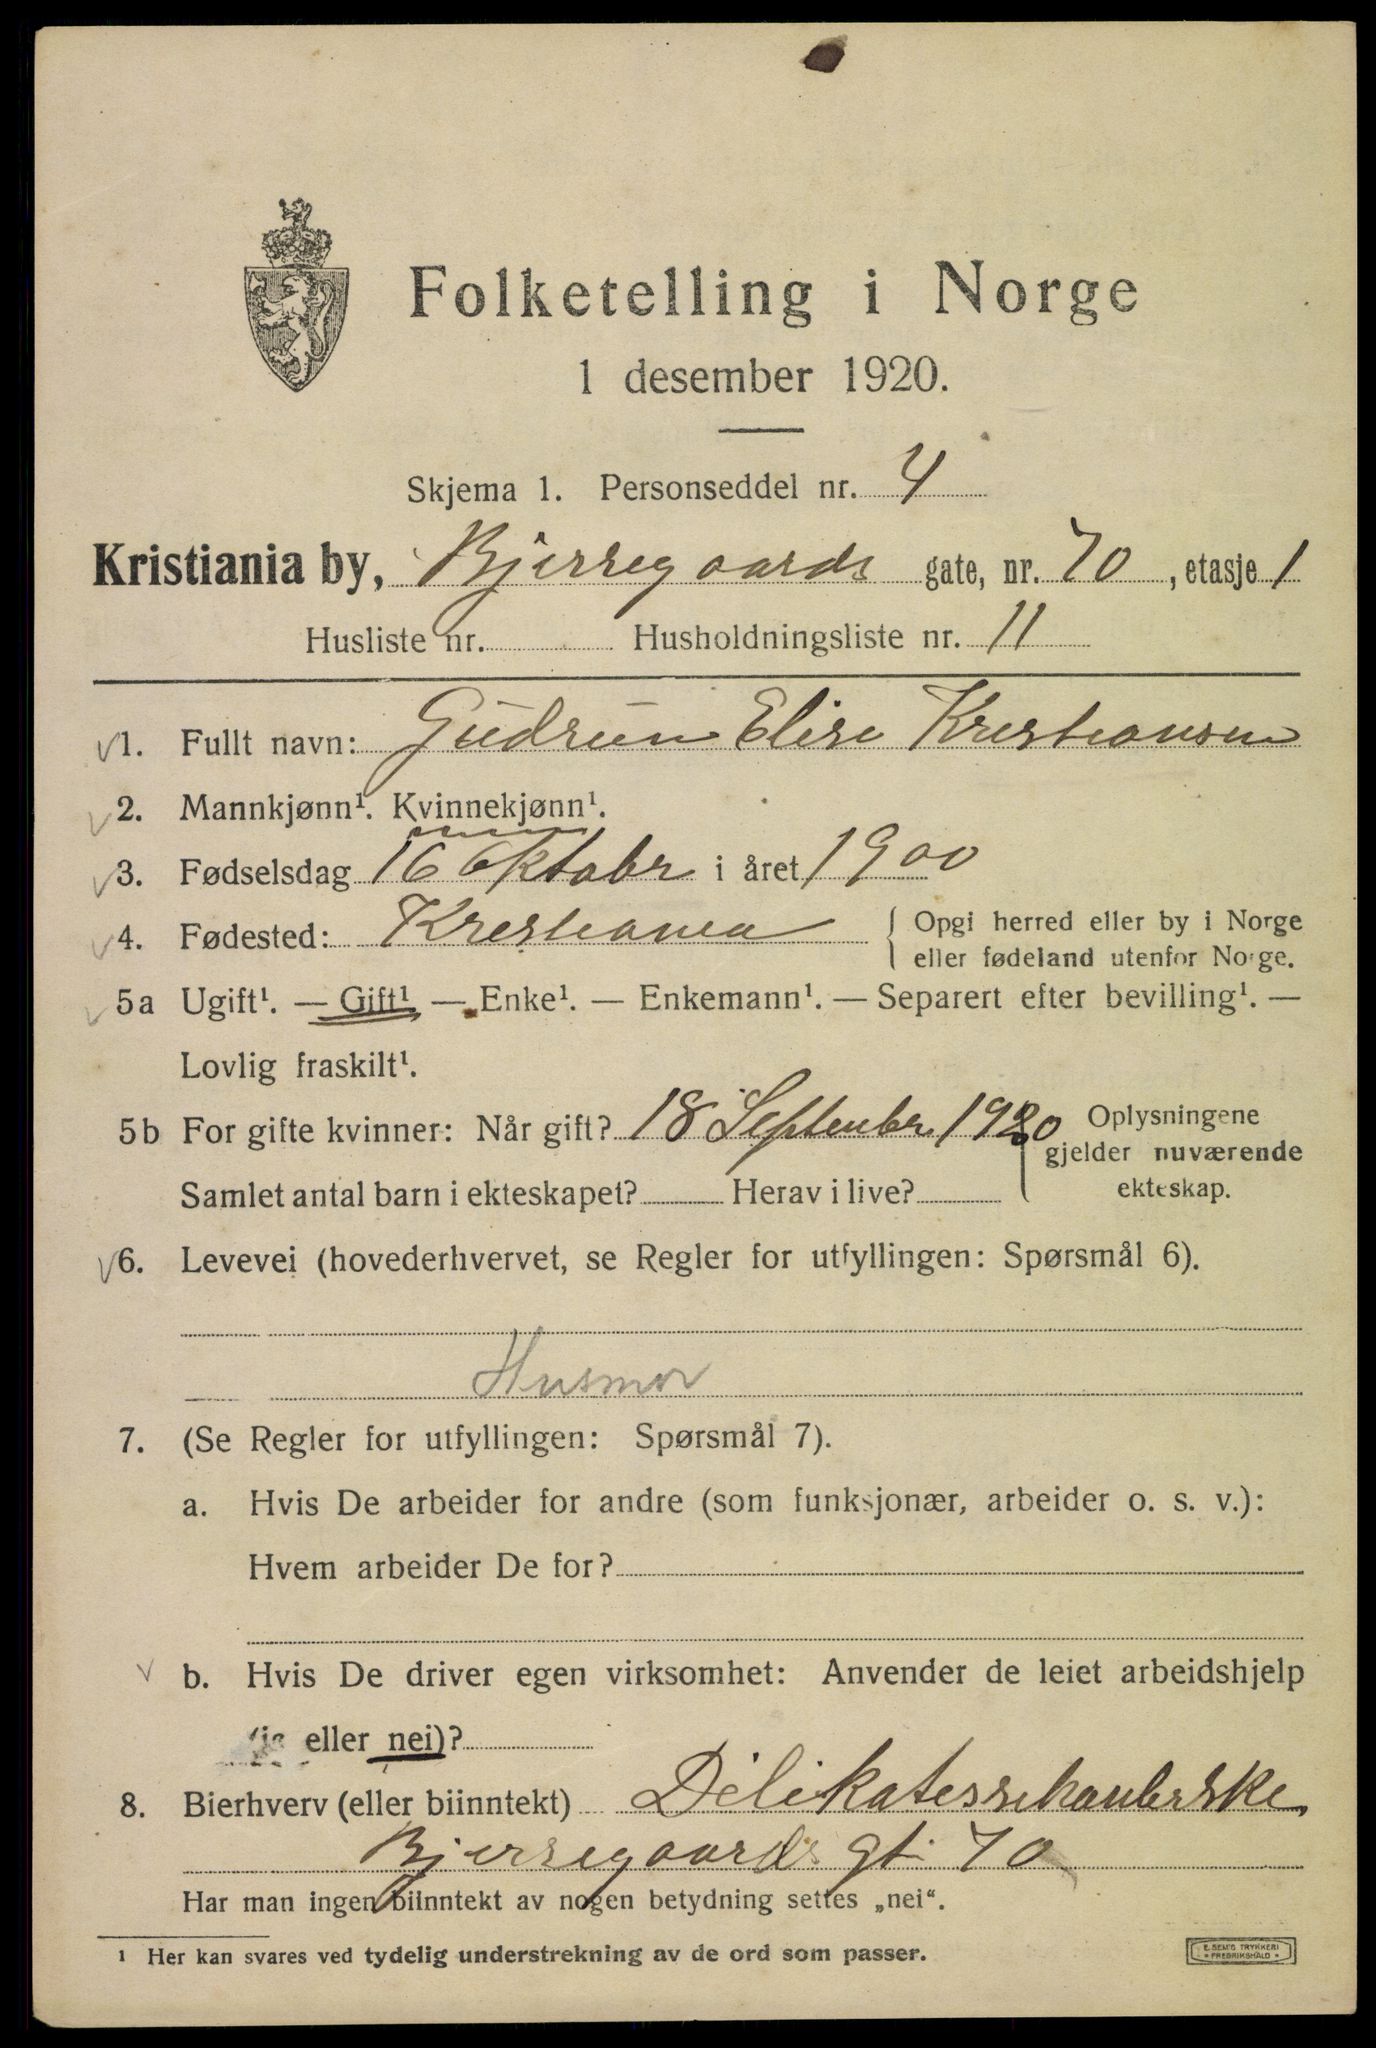 Folketelling i Norge
1 desember 1920.
Skjema 1. Personseddel nr. 4
Kristiania by, Bjerregaards gate, nr. 70, etasje 1
Husliste nr. Husholdningsliste nr. 11
1. Fullt navn: Gudrun Elise Krestiansen
2. Mannkjønn¹. Kvinnekjønn¹.
3. Fødselsdag 16 Oktobr i året 1900
4. Fødested: Krestiania { Opgi herred eller by i Norge
eller fødeland utenfor Norge.
5a Ugift¹. — Gift¹ — Enke¹. — Enkemann¹. — Separert efter bevilling¹. —
Lovlig fraskilt¹.
5b For gifte kvinner: Når gift? 18 Septembr. 1920 Oplysningene
gjelder nuværende
Samlet antal barn i ekteskapet? Herav i live? ekteskap.
6. Levevei (hovederhvervet, se Regler for utfyllingen: Spørsmål 6).
Husmor
7. (Se Regler for utfyllingen: Spørsmål 7).
a. Hvis De arbeider for andre (som funksjonær, arbeider o. s. v.):
Hvem arbeider De for?
b. Hvis De driver egen virksomhet: Anvender de leiet arbeidshjelp
(ja eller nei)?
8. Bierhverv (eller biinntekt) Delikatessehandlerske
Bjerregaards gt. 70
Har man ingen biinntekt av nogen betydning settes „nei“.
¹ Her kan svares ved tydelig understrekning av de ord som passer.
E. SEM'S TRYKKERI
* FREDRIKSHALD *